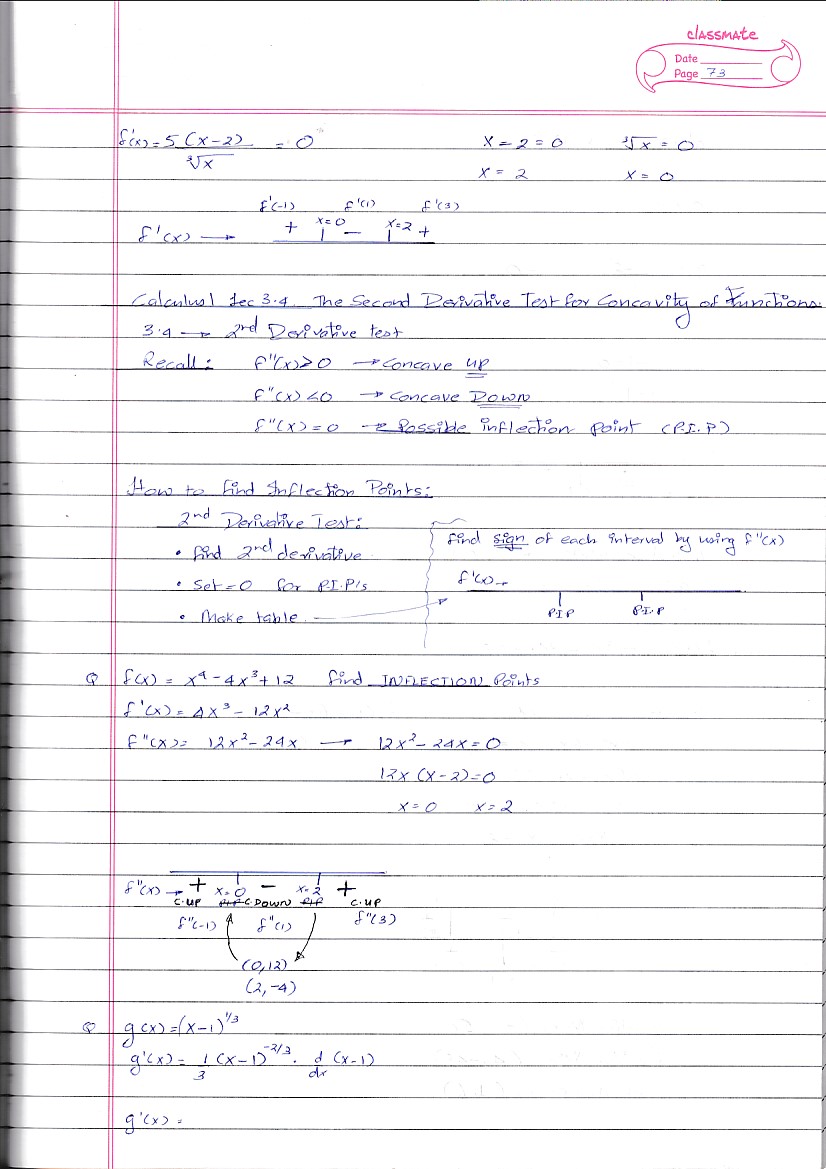 classmate
Date
Page 73
f'(x) = 5 (x-2) / ∛x = 0    x - 2 = 0    ∛x = 0
x = 2    x = 0
f'(-1)    f'(1)    f'(3)
f'(x) → + x=0 − x=2 +
Calculus 1 Lec 3.4 The Second Derivative Test for Concavity of Functions.
3.4 → 2nd Derivative test
Recall: f''(x) > 0 → Concave UP
f''(x) < 0 → Concave DOWN
f''(x) = 0 → Possible inflection point (P.I.P)
How to find Inflection Points:
2nd Derivative Test:
• find 2nd derivative
• Set = 0 for P.I.P's
• Make table
find sign of each interval by using f''(x)
f'(x) →
PIP    P.I.P
Q f(x) = x⁴ - 4x³ + 12 find INFLECTION Points
f'(x) = 4x³ - 12x²
f''(x) = 12x² - 24x → 12x² - 24x = 0
12x (x-2) = 0
x = 0    x = 2
f''(x) → + x=0 − x=2 +
C.UP PIP C DOWN PIP C.UP
f''(-1)    f''(1)    f''(3)
(0,12)
(2,-4)
Q g(x) = (x-1)^1/3
g'(x) = 1/3 (x-1)^-2/3 · d/dx (x-1)
g'(x) =